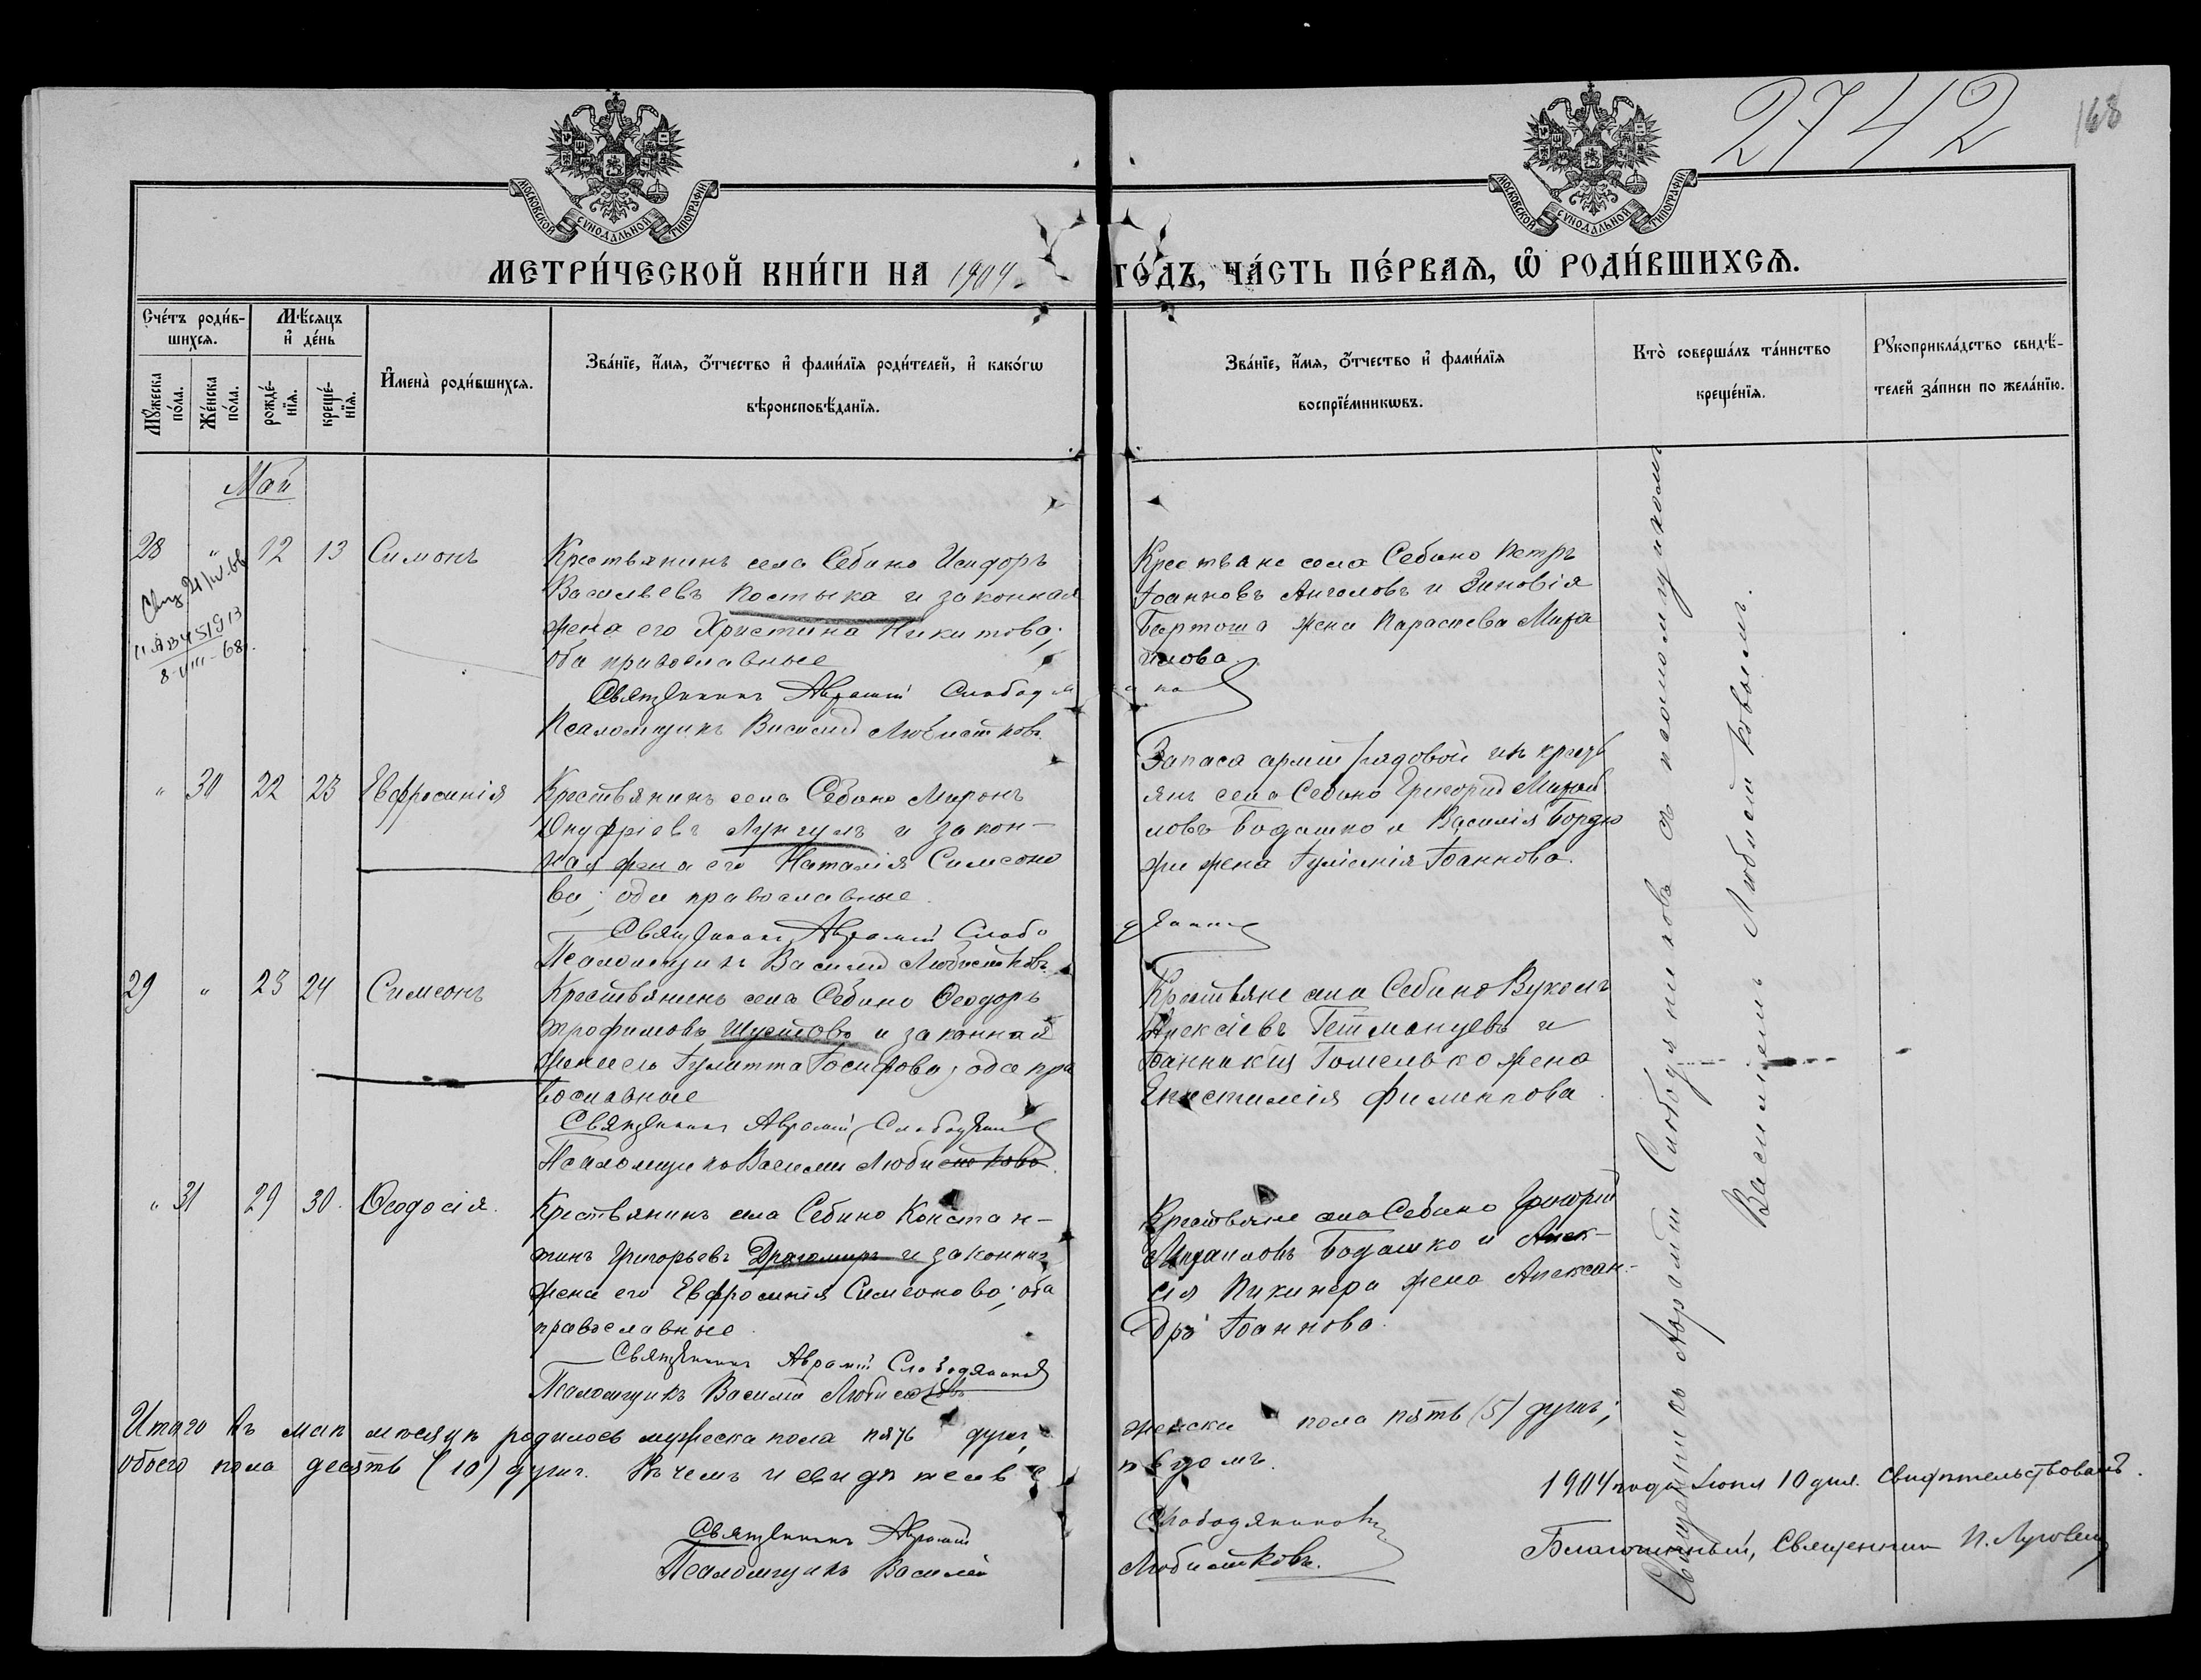 2742
168
МОСКОВСКОЙ СѴНОДАЛЬНОЙ ТИПОГРАФІИ
МОСКОВСКОЙ СѴНОДАЛЬНОЙ ТИПОГРАФІИ
МЕТРИ́ЧЕСКОЙ КНИ́ГИ НА 1904 ГО́ДЪ, ЧА́СТЬ ПЕ́РВАЯ, Ѡ҆ РОДИ́ВШИХСЯ.
Сче́тъ роди́в-
шихся.
Мꙋ́жеска по́ла.
Же́нска по́ла.
Мѣ́сяцъ
и҆ де́нь
рожде́-
нїя.
креще́-
нїя.
И҆мена̀ роди́вшихся.
Зва́нїе, и҆́мя, ѻ҆́тчество и҆ фами́лїя роди́телей, и҆ како́гѡ
вѣроисповѣ́данїя.
Зва́нїе, и҆́мя, ѻ҆́тчество и҆ фами́лїя
воспрїе́мникѡвъ.
Кто̀ соверша́лъ та́инство
креще́нїя.
Рꙋкоприкла́дство свидѣ́-
телей за́писи по жела́нїю.
Май
28 " 12 13 Симонъ
8-VIII-68
Крестьянинъ села Себино Исидоръ
Васильевъ Костыка и законная
жена его Христина Никитова;
оба православные
Священникъ Аврамій Слободяника
Псаломщикъ Василий Любистковъ.
Крестьяне села Себино Петръ
Іоанновъ Ангеловъ и Зиновія
Бартоша жена Параскева Михаи
лова
" 30 22 23 Евфросинія
Крестьянинъ села Себино Миронъ
Онуфріевъ Лунгулъ и закон-
ная жена его Наталія Симеоно
ва; оба православные.
Священникъ Аврамій Слободяник
Псаломщикъ Василий Любистковъ
Запаса арміи рядовой изъ кресть
янъ села Себино Григорий Михай
ловъ Бодашко и Василія Бордю
жи жена Іуліанія Іоаннова.
29 " 23 24 Симеонъ
Крестьянинъ села Себино Ѳеодоръ
Трофимовъ Шустовъ и законная
жена его Іулитта Іосифова; оба пра
вославные
Священникъ Аврамій Слободяник
Псаломщикъ Василий Любистковъ.
Крестьяне села Себино Вуколъ
Алексіевъ Гетманцевъ и
Іоанникія Гомелько жена
Епистимія Филиппова.
" 31 29 30. Ѳеодосія.
Крестьянинъ села Себино Констан-
тинъ Григорьевъ Драгомиръ и законная
жена его Евфросинія Симеонова; оба
православные.
Священникъ Аврамій Слободяник
Псаломщикъ Василий Любистковъ
Крестьяне села Себино Григорій
Михаиловъ Бодашко и Алек-
сія Пикинера жена Алексан-
дра Іоаннова.
Священникъ Аврамій Слободяниковъ съ псаломщикомъ
Василиемъ Любистковымъ.
Итого въ маѣ мѣсяцѣ родилось мужеска пола пять душъ, женска пола пять (5) душъ;
обоего пола десять (10) душъ. Въ чемъ и свидѣтельствуемъ.
Священникъ Аврамій Слободяниковъ
Псаломщикъ Василий Любистковъ.
1904 года Іюня 10 дня. Свидѣтельствовалъ.
Благочинный, Священникъ П.